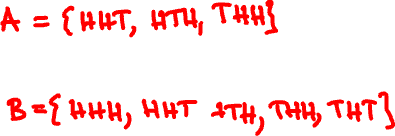 A = {HHT, HTH, THH}
B = {HHH, HHT HTH, THH, THT}